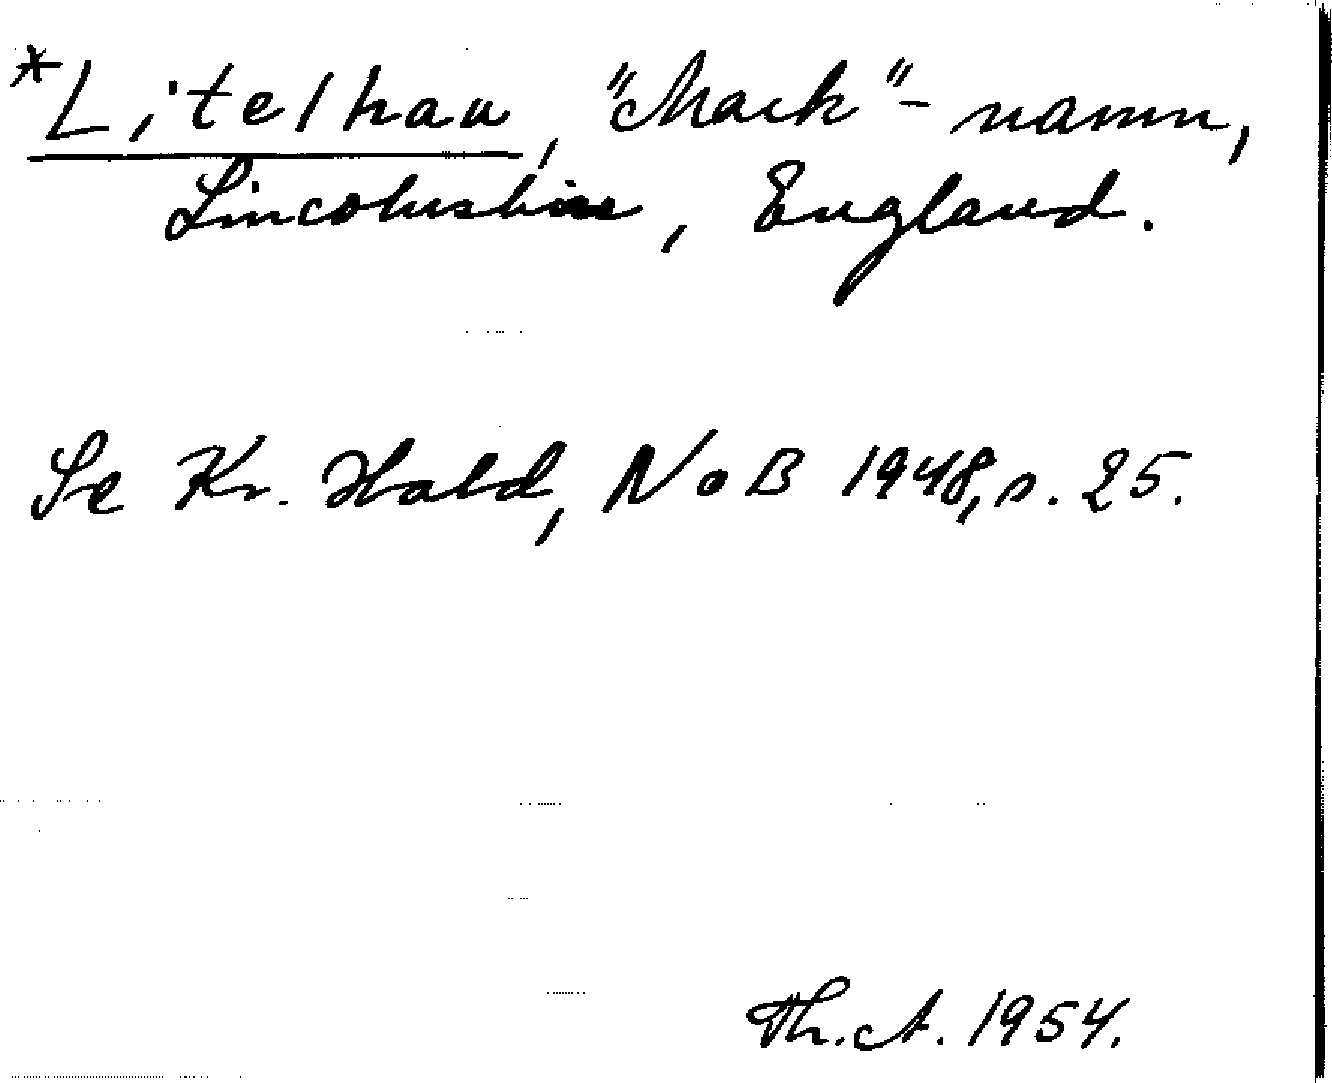 *Litelhau, "Mark"-namn,
Lincolnshire, England.
Se Kr. Hald, NoB 1948, s. 25.
Th. A. 1954.